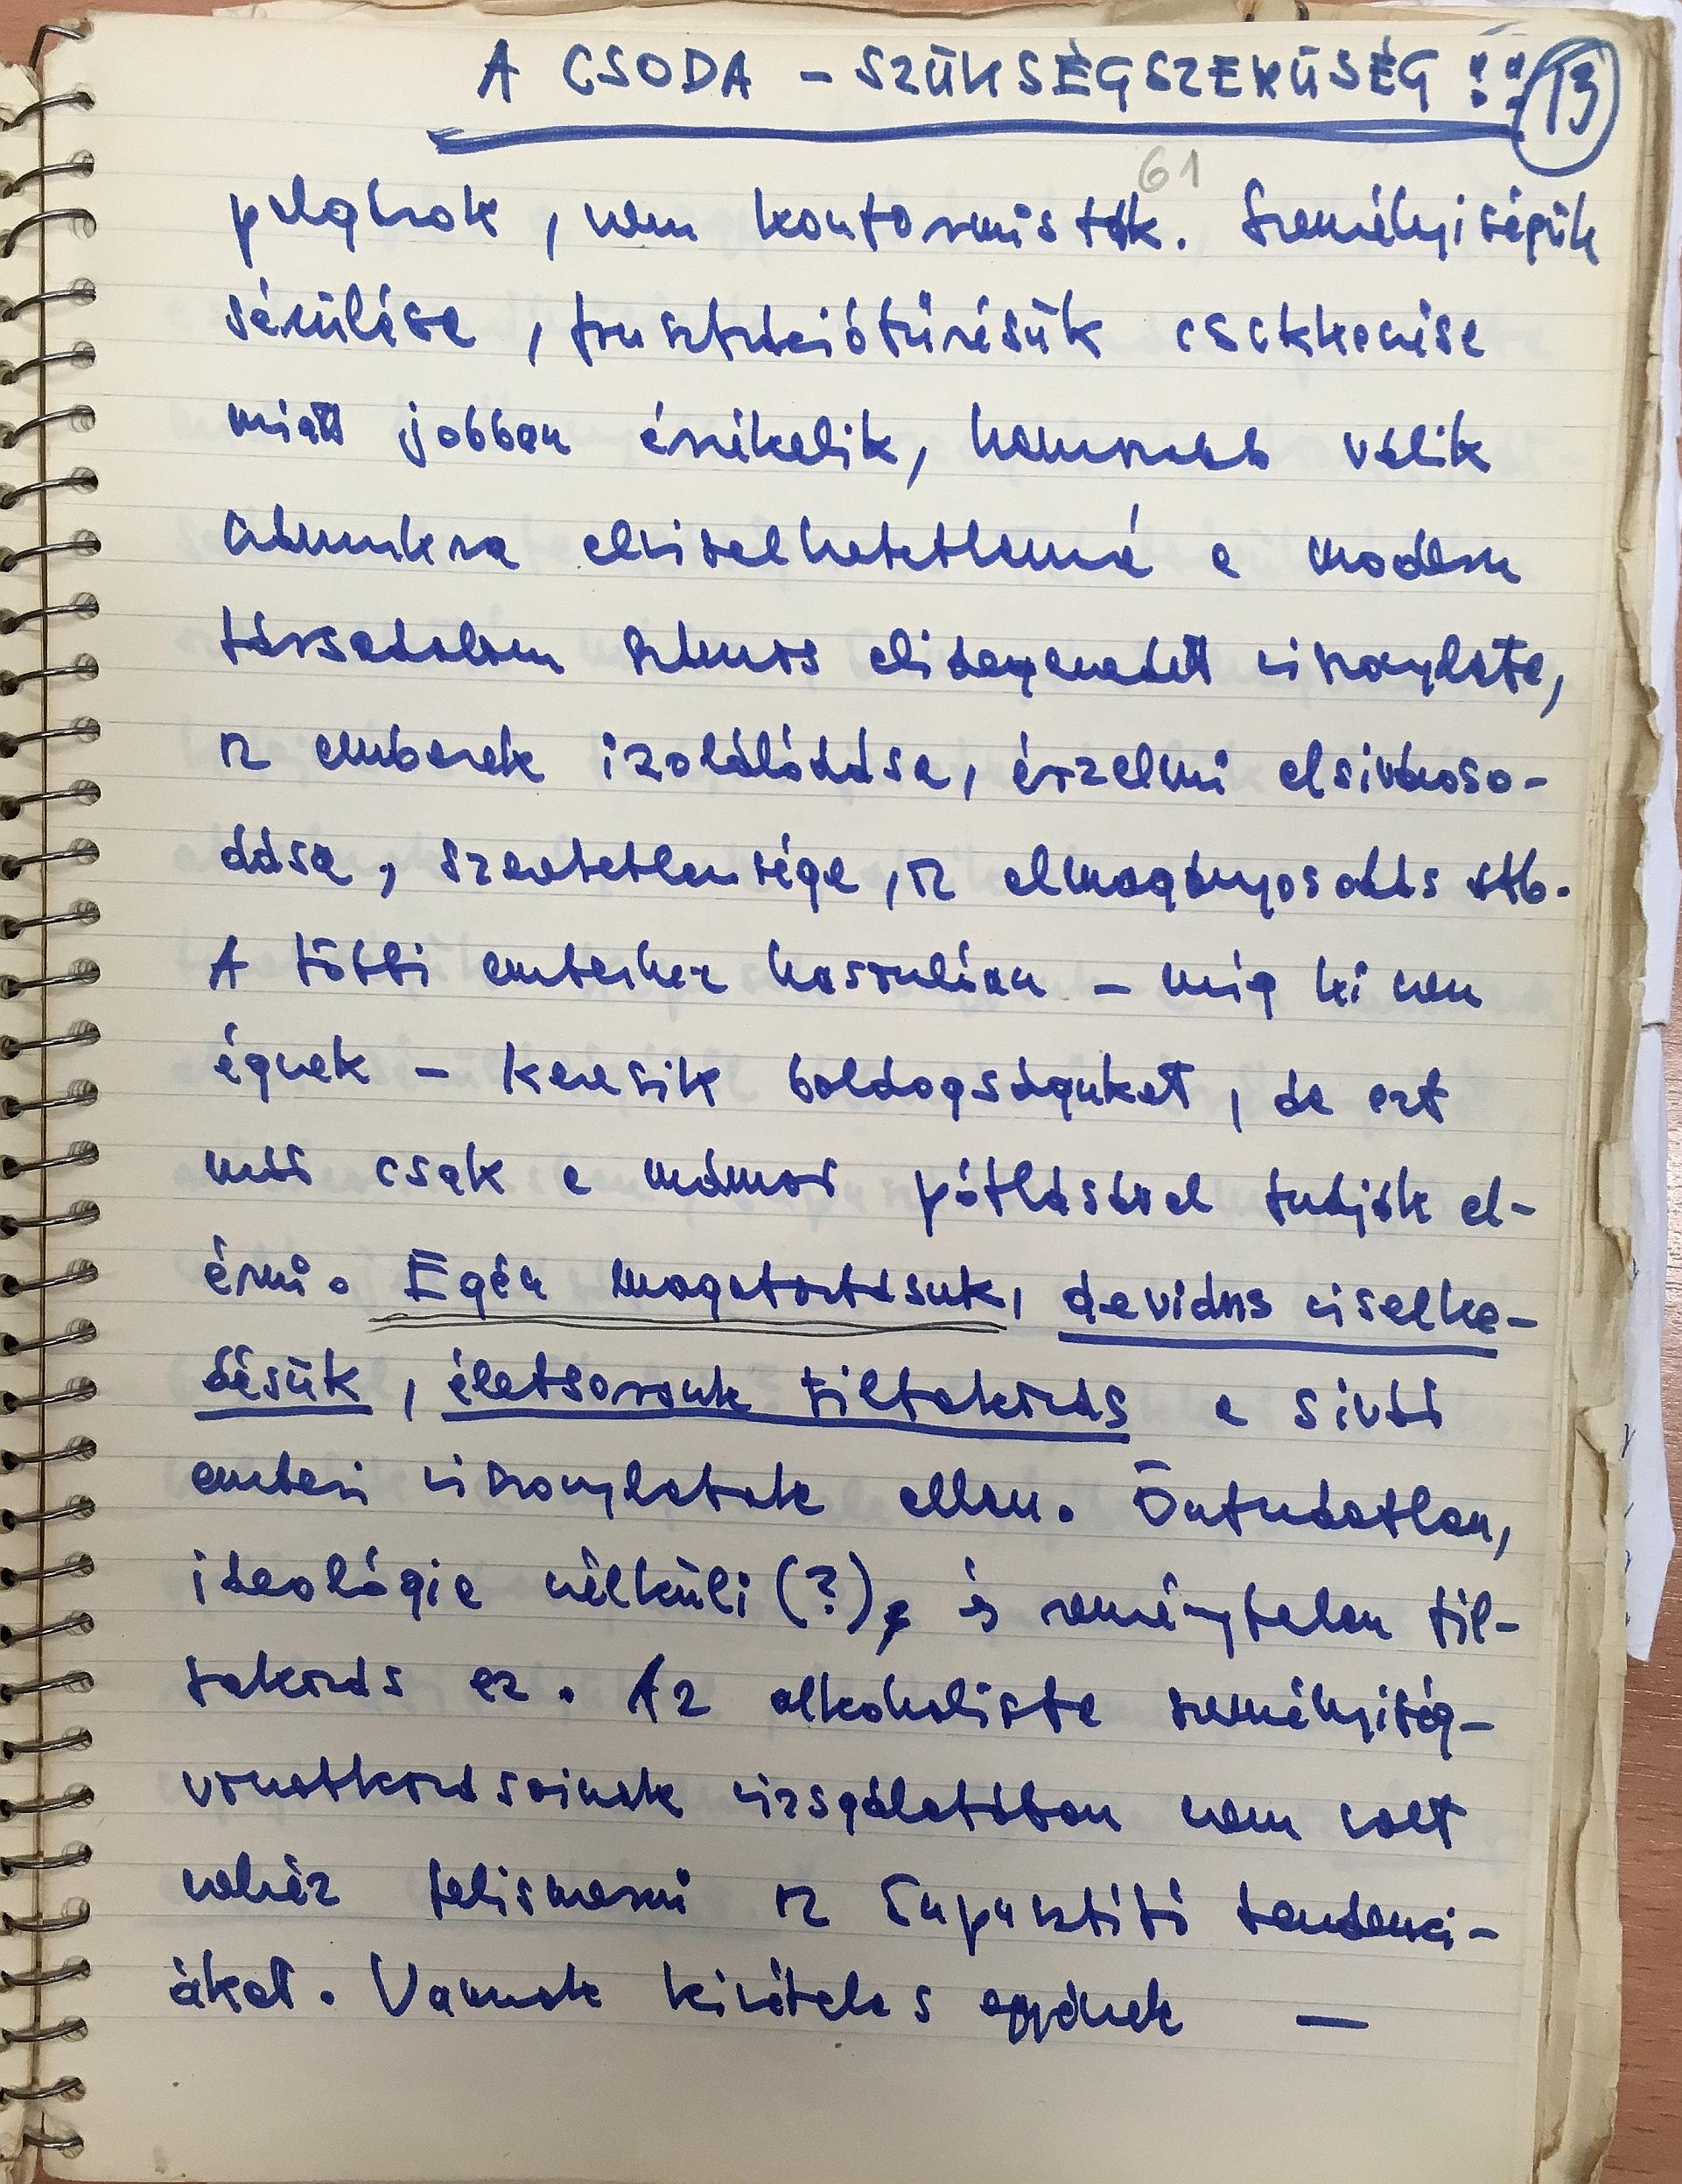 A CSODA – SZÜKSÉGSZERŰSÉG !! 13
61
polgárok, nem konformisták. Személyiségük
sérülése, frusztrációtűrésük csökkenése
miatt jobban érzékelik, hamarabb válik
számukra elviselhetetlenné a modern
társadalom számos elidegenedett viszonylata,
az emberek izolálódása, érzelmi elsivároso-
dása, szeretetlensége, az elmagányosodás stb.
A többi emberhez hasonlóan – míg ki nem
égnek – keresik boldogságukat, de ezt
már csak a mámor pótlásával tudják el-
érni. Egén magatartásuk, deviáns viselke-
désük, életsorsuk tiltakozás a sivár
emberi viszonylatok ellen. Öntudatlan,
ideológia nélküli (?), és reménytelen til-
takozás ez. Az alkoholista személyiség-
vonatkozásainak vizsgálatában nem volt
nehéz felismerni az önpusztító tendenci-
ákat. Vannak kivételes egyének –